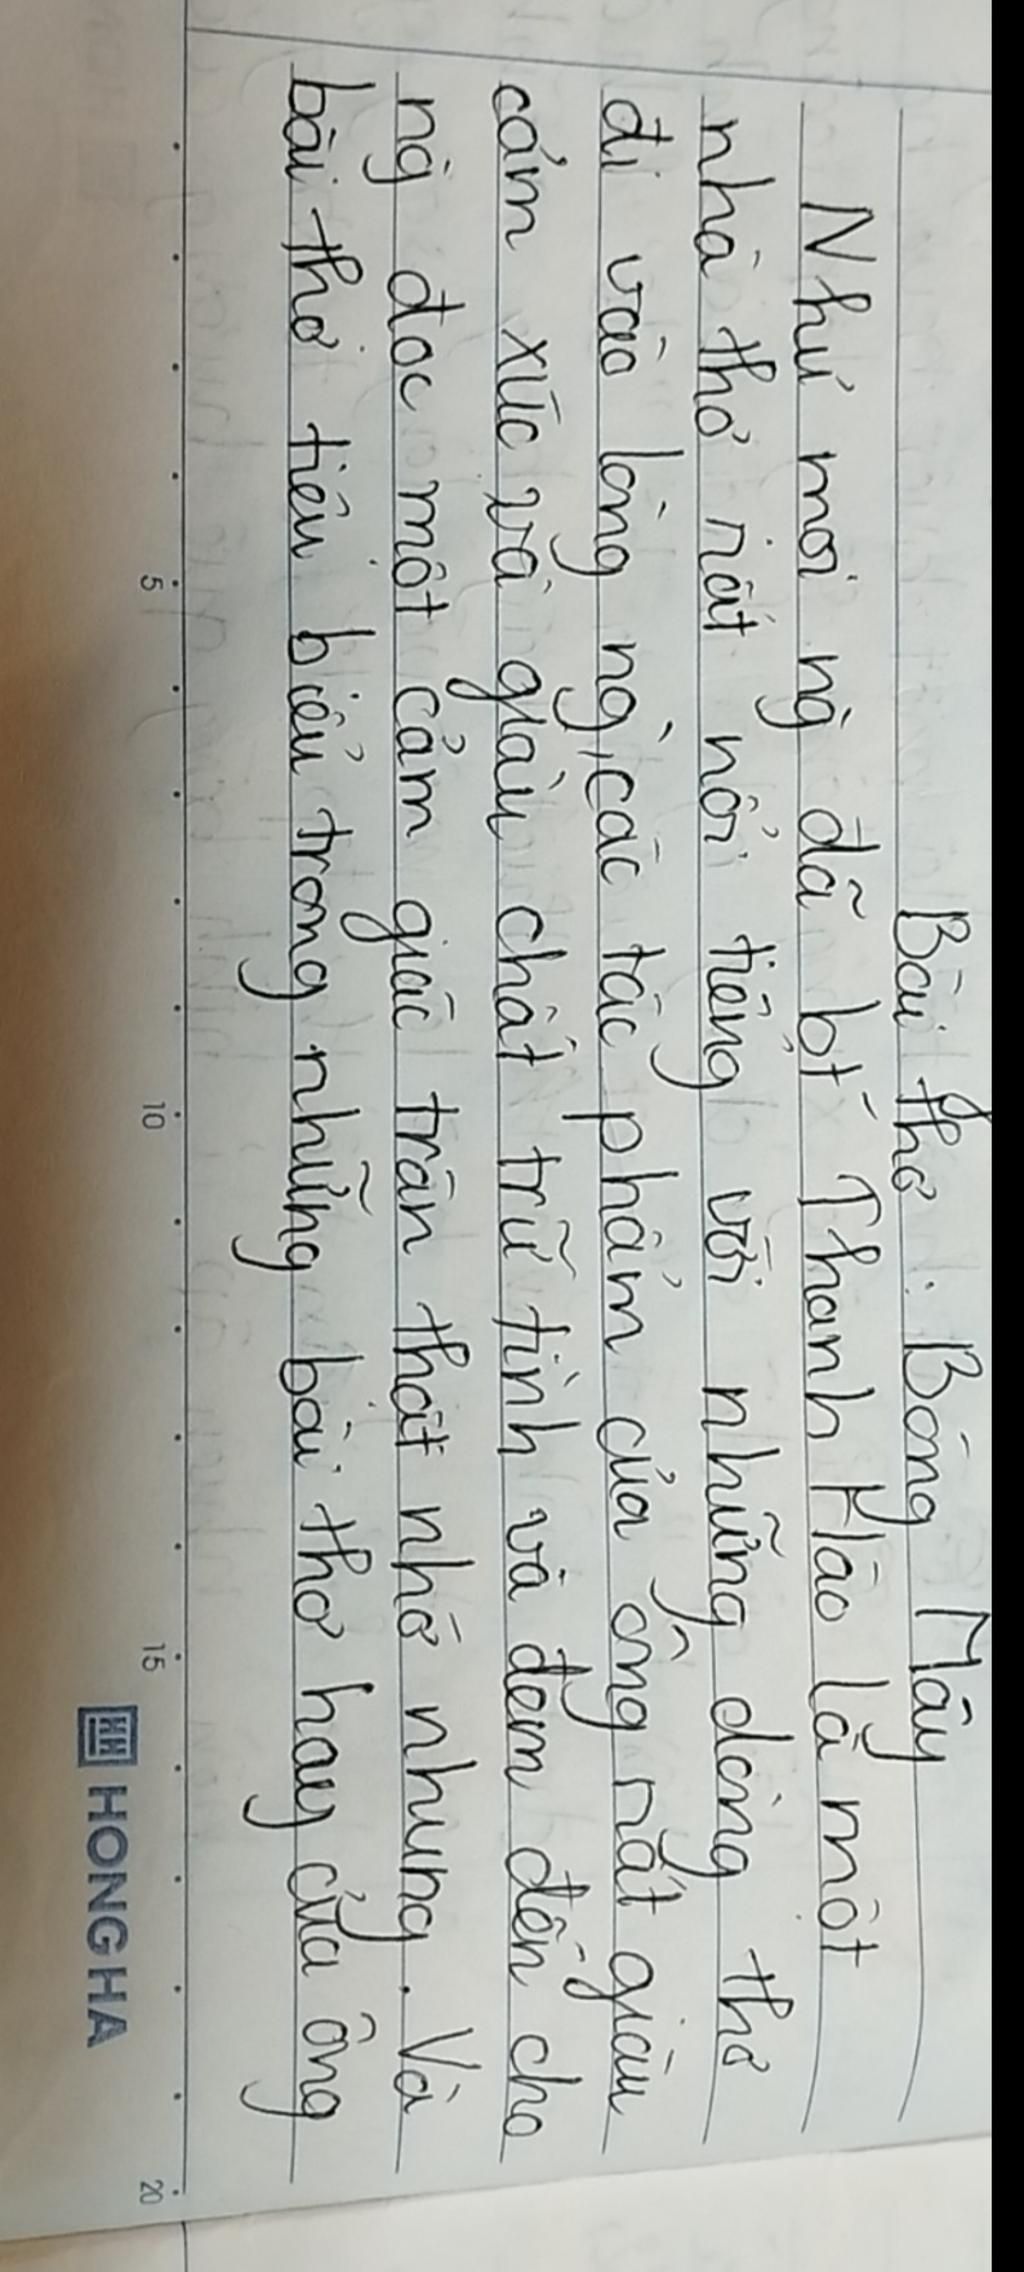 Bài thơ : Bóng Mây
Như mọi ng̀ đã bt́ Thanh Hảo là một
nhà thơ rất nổi tiếng với những dòng thơ
đi vào lòng ng̀, các tác phẩm của ông rất giàu
cảm xúc và giàu chất trữ tình và đem đến cho
ng̀ đọc một cảm giác trân thật nhớ nhung. Và
bài thơ tiêu biểu trong những bài thơ hay của ông
5
10
15
20
HH HONG HA